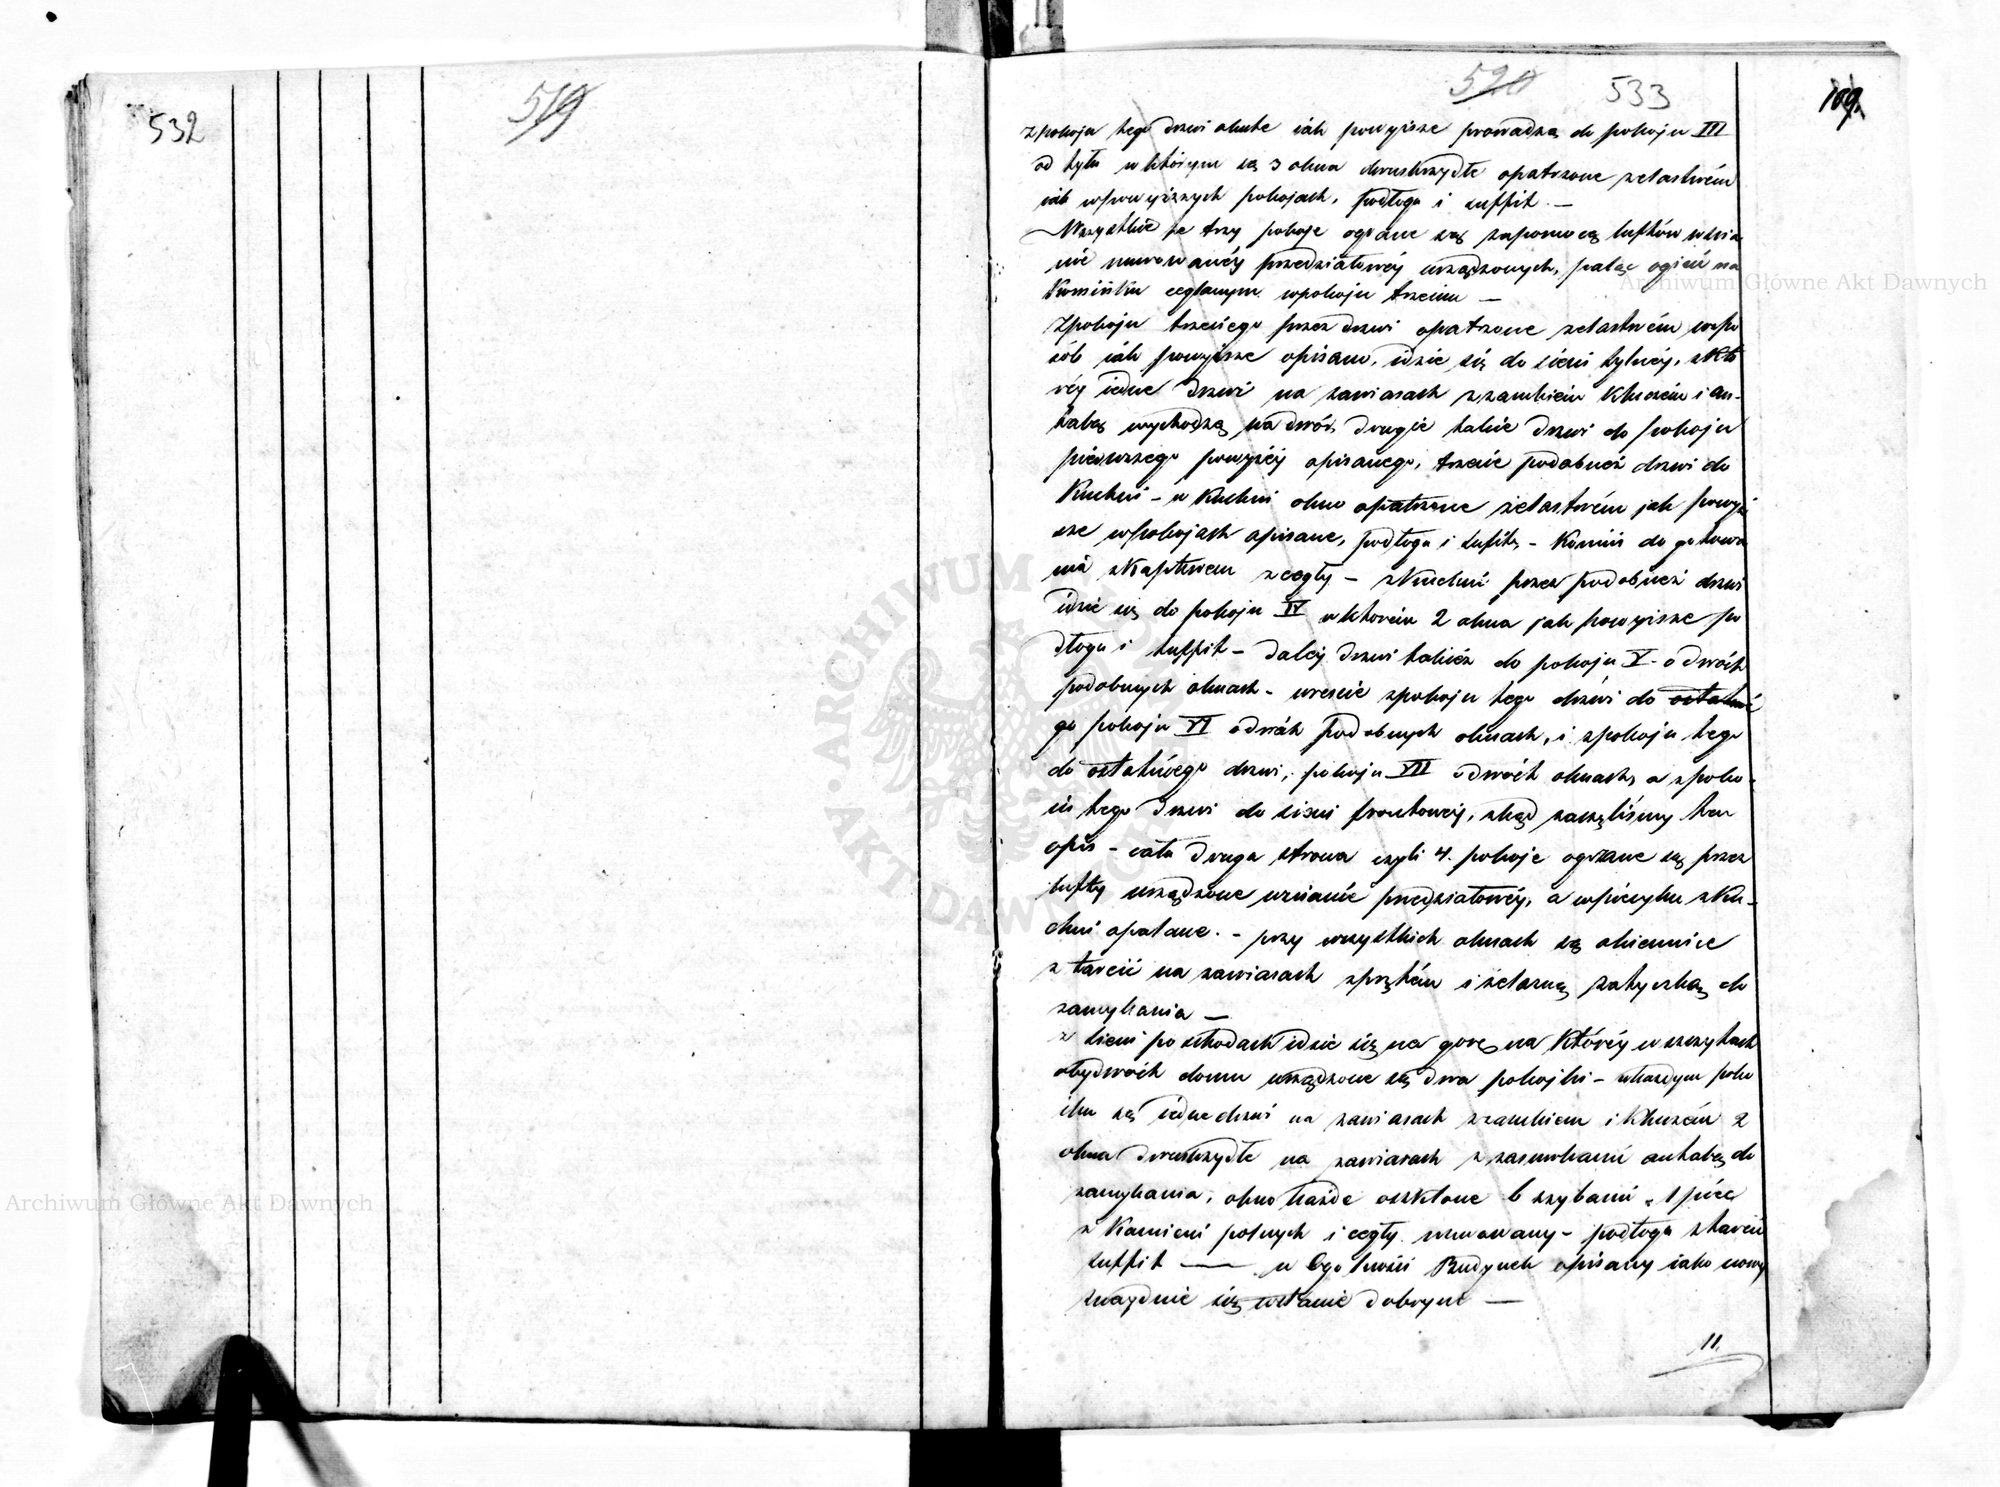 532
519
520
533
109.
z pokoju tego drzwi okute iak powyisze prowadzą do pokoju III
od tyłu w którym są 3 okna dwuskrzydłe opatrzone zelastwém
iak w powyiższych pokojach, podłoga i suffit. —
Wszystkie te trzy pokoje ogrzane są zapomocą luftów w ścia
nie murowanéy przedziałowéy urządzonych, paląc ogień na
Kominku ceglanym w pokoju trzecim —
Z pokoju trzeciego przez drzwi opatrzone zelastwém w spo
sób iák powyisze opisano, idzie się do sieni tylnéy, z któ
réy iedne drzwi na zawiasach z zamkiem kluczém i an-
tabą wychodzą na dwór, drugie takie drzwi do pokoju
piérwszego powyżéy opisanego, trzecie podobneż drzwi do
Kuchni – w Kuchni okno opatrzone żelastwém jak powyż
sze w pokojach opisane, podłoga i sufit, – Komin do gotowa
nia z Kapturem z cegły – z Kuchni przez podobneż drzwi
idzie się do pokoju IV w którém 2 okna jak powyisze po
dłoga i suffit – daléy drzwi takież do pokoju V. o dwóch
podobnych oknach – wreście z pokoju tego drzwi do ostatnié
go pokoju VI o dwóch podobnych oknach, i z pokoju tego
do ostatniego drzwi, pokoju VII o dwóch oknach, a z poko-
iu tego drzwi do sieni frontowéy, zkąd zaczęliśmy ten
opis – cała druga strona czyli 4. pokoje ogrzane są przez
lufty urządzone w ścianie przedziałowéy, a w piecyku z Ku-
chni opalane. – przy wszystkich oknach są okiennice
z tarcic na zawiasach z prętém i żelazną zatyczką do
zamykania —
z sieni po schodach idzie się na górę na któréy w szczytach
obydwóch domu urządzone są dwa pokojki – w każdym poko
iku są iedne drzwi na zawiasach z zamkiem i kluczém 2
okna dwuskrzydłe na zawiasach z zasuwkami antabą do
zamykania, okno każde oszklone 6 szybami, 1 piéc
z Kamieni polnych i cegły murowany – podłoga z tarcic
suffit —— w Ogólności Budynek opisany iako nowy
znayduie się w stanie dobrym —
11.
Archiwum Główne Akt Dawnych
Archiwum Główne Akt Dawnych